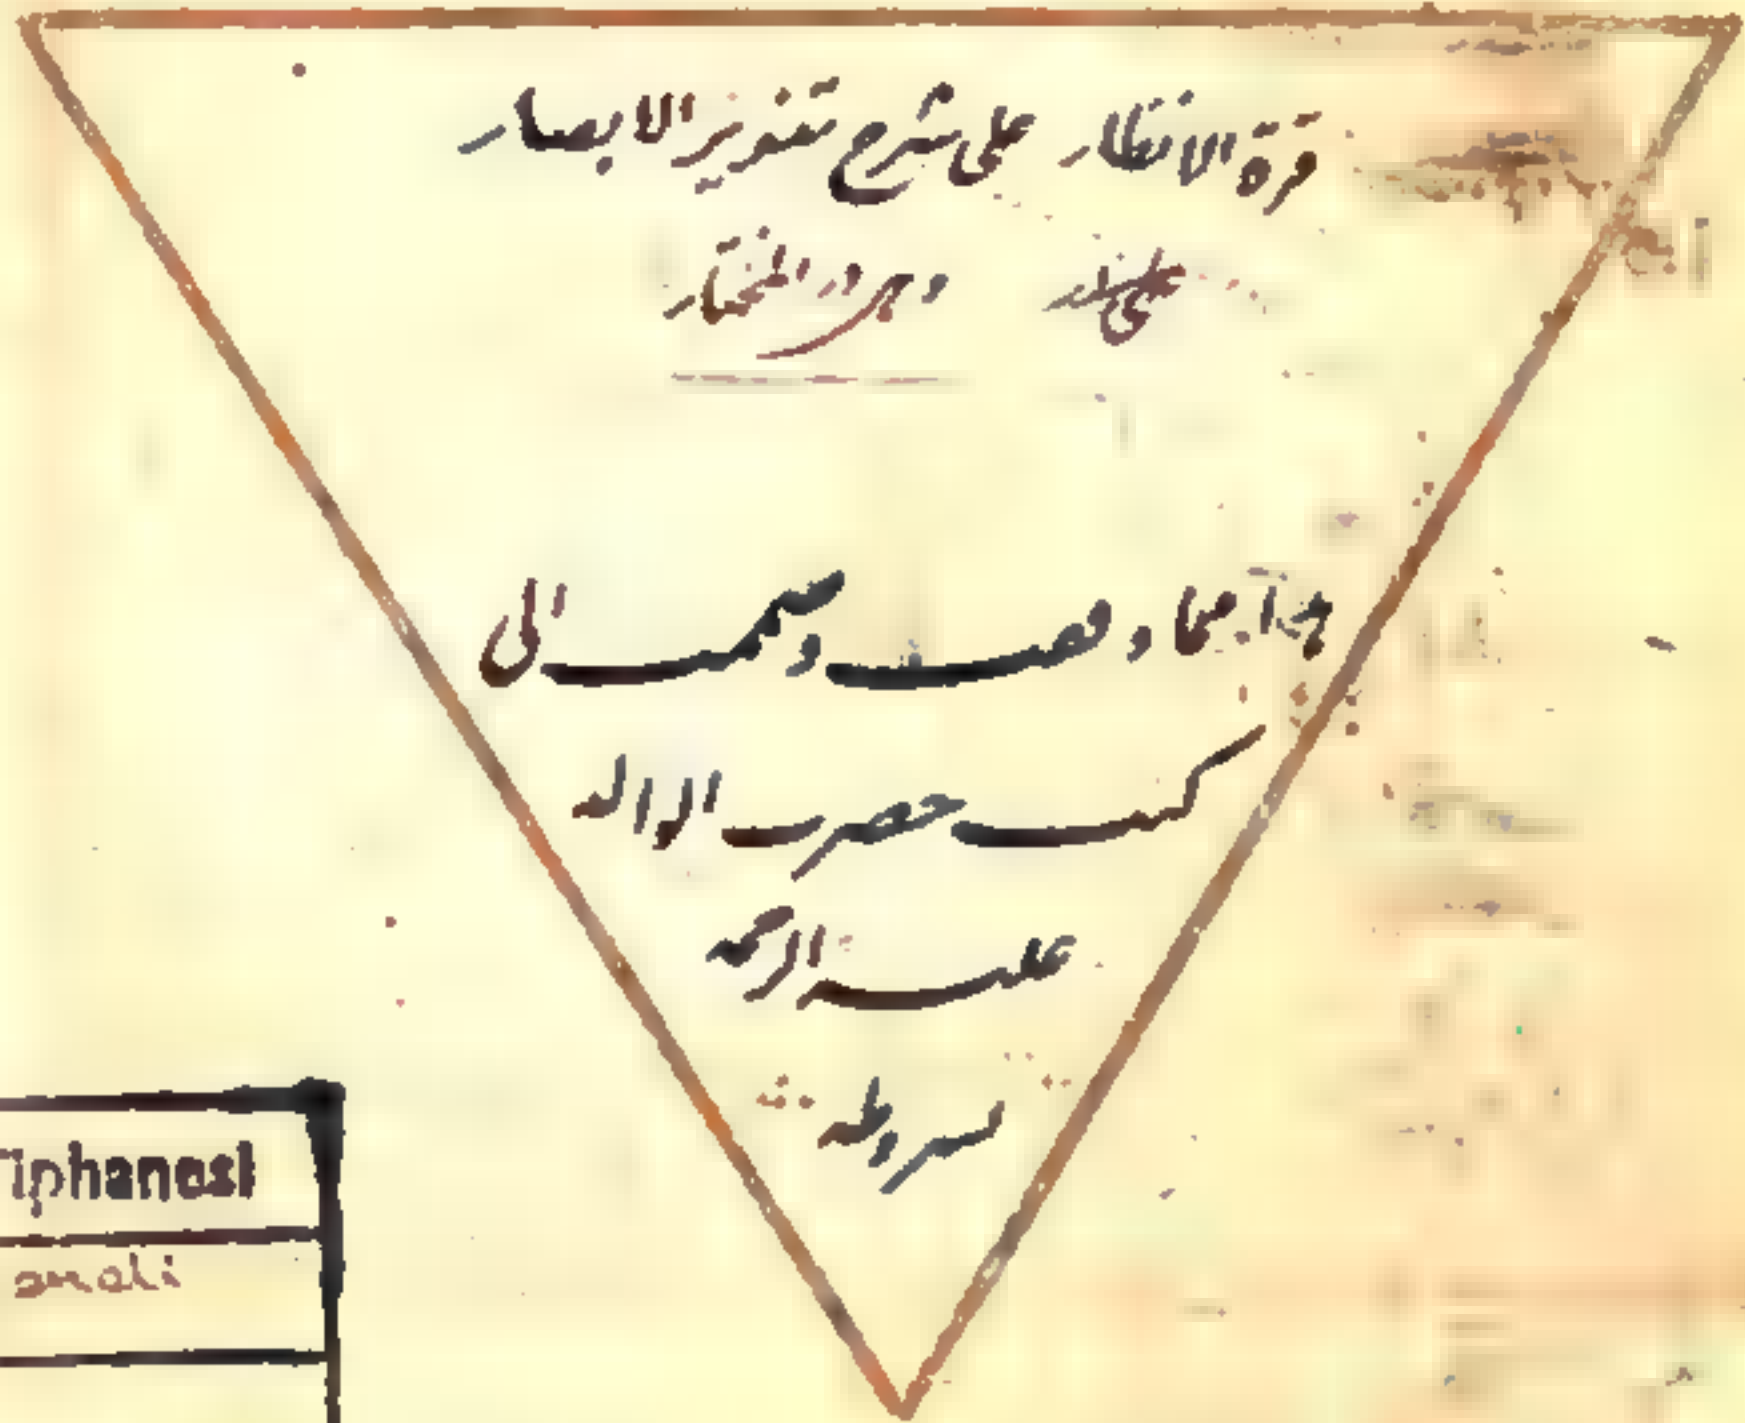 قرة الانظار على شرح تنوير الابصار
وهو در المختار
هذا مما وقف وضمت الى
كتب حضرت الوالد
عليه الرحمه
بشروطه
iphanesi